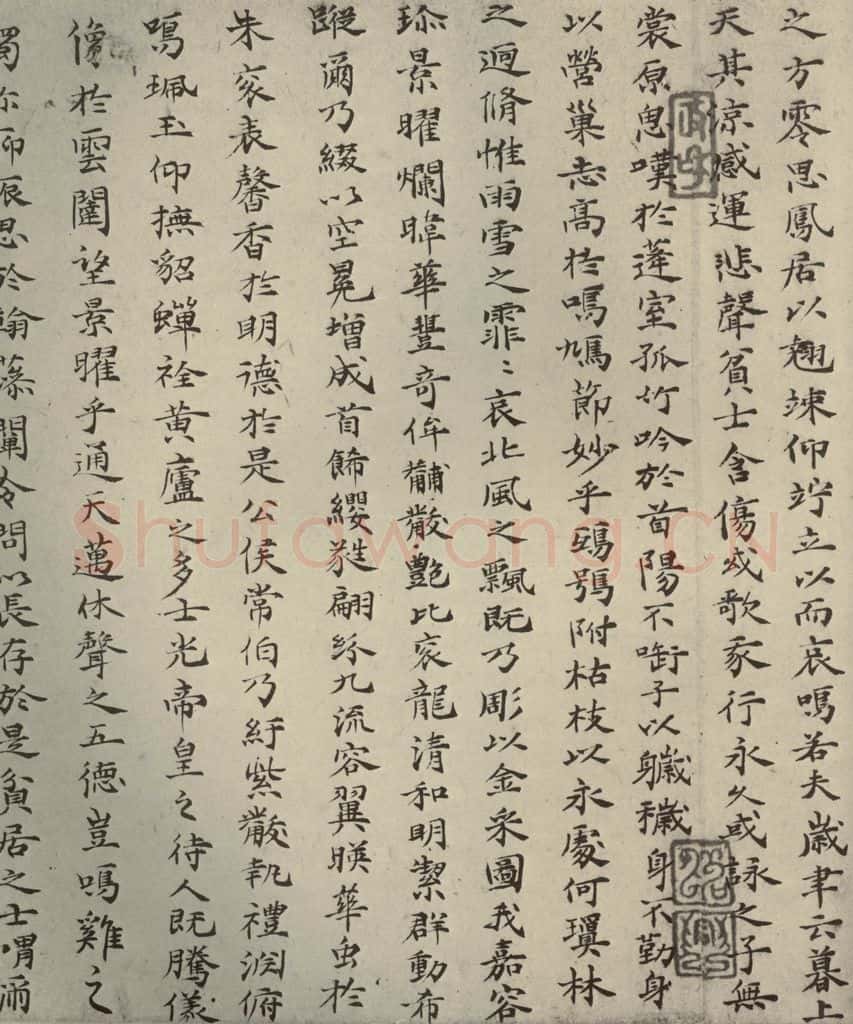 之方零思鳳居以翹竦仰竚立以而哀鳴若夫歲聿云暮上
天其涼感運悲聲貧士含傷或歌我行永久或詠之子無
裳原思嘆於蓬室孤竹吟於首陽不銜子以穢身不勤身
以營巢志高於鳴鳩節妙乎鴟鴞附枯枝以永處何瓊林
之迥脩惟雨雪之霏〻哀北風之飄既乃彫以金采圖我嘉容
珎景曜爛暐華豐奇侔黼黻艷比袞龍清和明潔群動希
蹤爾乃綴以空冕增成首飾纓蕤翩紛九流容翼映華虫於
朱袞表馨香於明德於是公侯常伯乃紆紫黻執禮淵俯
鳴珮玉仰撫貂蟬黃廬之多士光帝皇之待人既騰儀
像於雲闈望景曜乎通天邁休聲之五德豈鳴雞之
獨珎聊振思於翰藻闡令問以長存於是貧居之士喟爾
Shufawang.CN